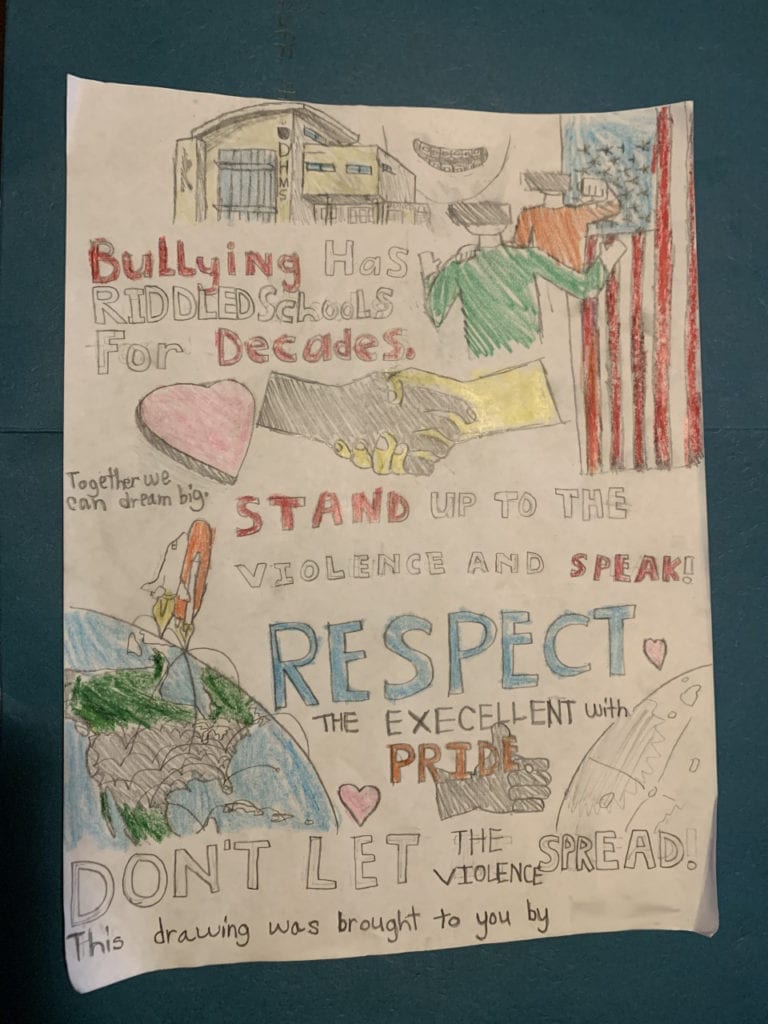 DHMS
Bullying Has
RIDDLED Schools
For Decades.
Together we
can dream big.
STAND UP TO THE
VIOLENCE AND SPEAK!
RESPECT
THE EXECELLENT with
PRIDE
DON'T LET THE VIOLENCE SPREAD!
This drawing was brought to you by